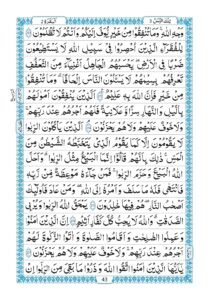 وَجْهِ اللّٰهِ ؕ وَمَا تُنْفِقُوْا مِنْ خَيْرٍ يُّوَفَّ اِلَيْكُمْ وَاَنْتُمْ لَا تُظْلَمُوْنَ
لِلْفُقَرَآءِ الَّذِيْنَ اُحْصِرُوْا فِيْ سَبِيْلِ اللّٰهِ لَا يَسْتَطِيْعُوْنَ
ضَرْبًا فِي الْاَرْضِ يَحْسَبُهُمُ الْجَاهِلُ اَغْنِيَآءَ مِنَ التَّعَفُّفِ
تَعْرِفُهُمْ بِسِيْمٰهُمْ لَا يَسْـَٔلُوْنَ النَّاسَ اِلْحَافًا وَمَا تُنْفِقُوْا
مِنْ خَيْرٍ فَاِنَّ اللّٰهَ بِهٖ عَلِيْمٌ اَلَّذِيْنَ يُنْفِقُوْنَ اَمْوَالَهُمْ
بِالَّيْلِ وَالنَّهَارِ سِرًّا وَّعَلَانِيَةً فَلَهُمْ اَجْرُهُمْ عِنْدَ رَبِّهِمْ
وَلَا خَوْفٌ عَلَيْهِمْ وَلَا هُمْ يَحْزَنُوْنَ اَلَّذِيْنَ يَاْكُلُوْنَ الرِّبٰوا
لَا يَقُوْمُوْنَ اِلَّا كَمَا يَقُوْمُ الَّذِيْ يَتَخَبَّطُهُ الشَّيْطٰنُ مِنَ
الْمَسِّ ذٰلِكَ بِاَنَّهُمْ قَالُوْٓا اِنَّمَا الْبَيْعُ مِثْلُ الرِّبٰوا وَاَحَلَّ
اللّٰهُ الْبَيْعَ وَحَرَّمَ الرِّبٰوا فَمَنْ جَآءَهٗ مَوْعِظَةٌ مِّنْ رَّبِّهٖ
فَانْتَهٰى فَلَهٗ مَا سَلَفَ وَاَمْرُهٗٓ اِلَى اللّٰهِ وَمَنْ عَادَ فَاُولٰٓئِكَ
اَصْحٰبُ النَّارِ هُمْ فِيْهَا خٰلِدُوْنَ يَمْحَقُ اللّٰهُ الرِّبٰوا وَيُرْبِي
الصَّدَقٰتِ وَاللّٰهُ لَا يُحِبُّ كُلَّ كَفَّارٍ اَثِيْمٍ اِنَّ الَّذِيْنَ اٰمَنُوْا
وَعَمِلُوا الصّٰلِحٰتِ وَاَقَامُوا الصَّلٰوةَ وَاٰتَوُا الزَّكٰوةَ لَهُمْ
اَجْرُهُمْ عِنْدَ رَبِّهِمْ وَلَا خَوْفٌ عَلَيْهِمْ وَلَا هُمْ يَحْزَنُوْنَ
يٰٓاَيُّهَا الَّذِيْنَ اٰمَنُوا اتَّقُوا اللّٰهَ وَذَرُوْا مَا بَقِيَ مِنَ الرِّبٰٓوا اِنْ
43